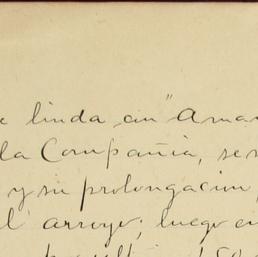 linda en "Ama
la Compañia, se
y su prolongacion,
arroyo; luego en